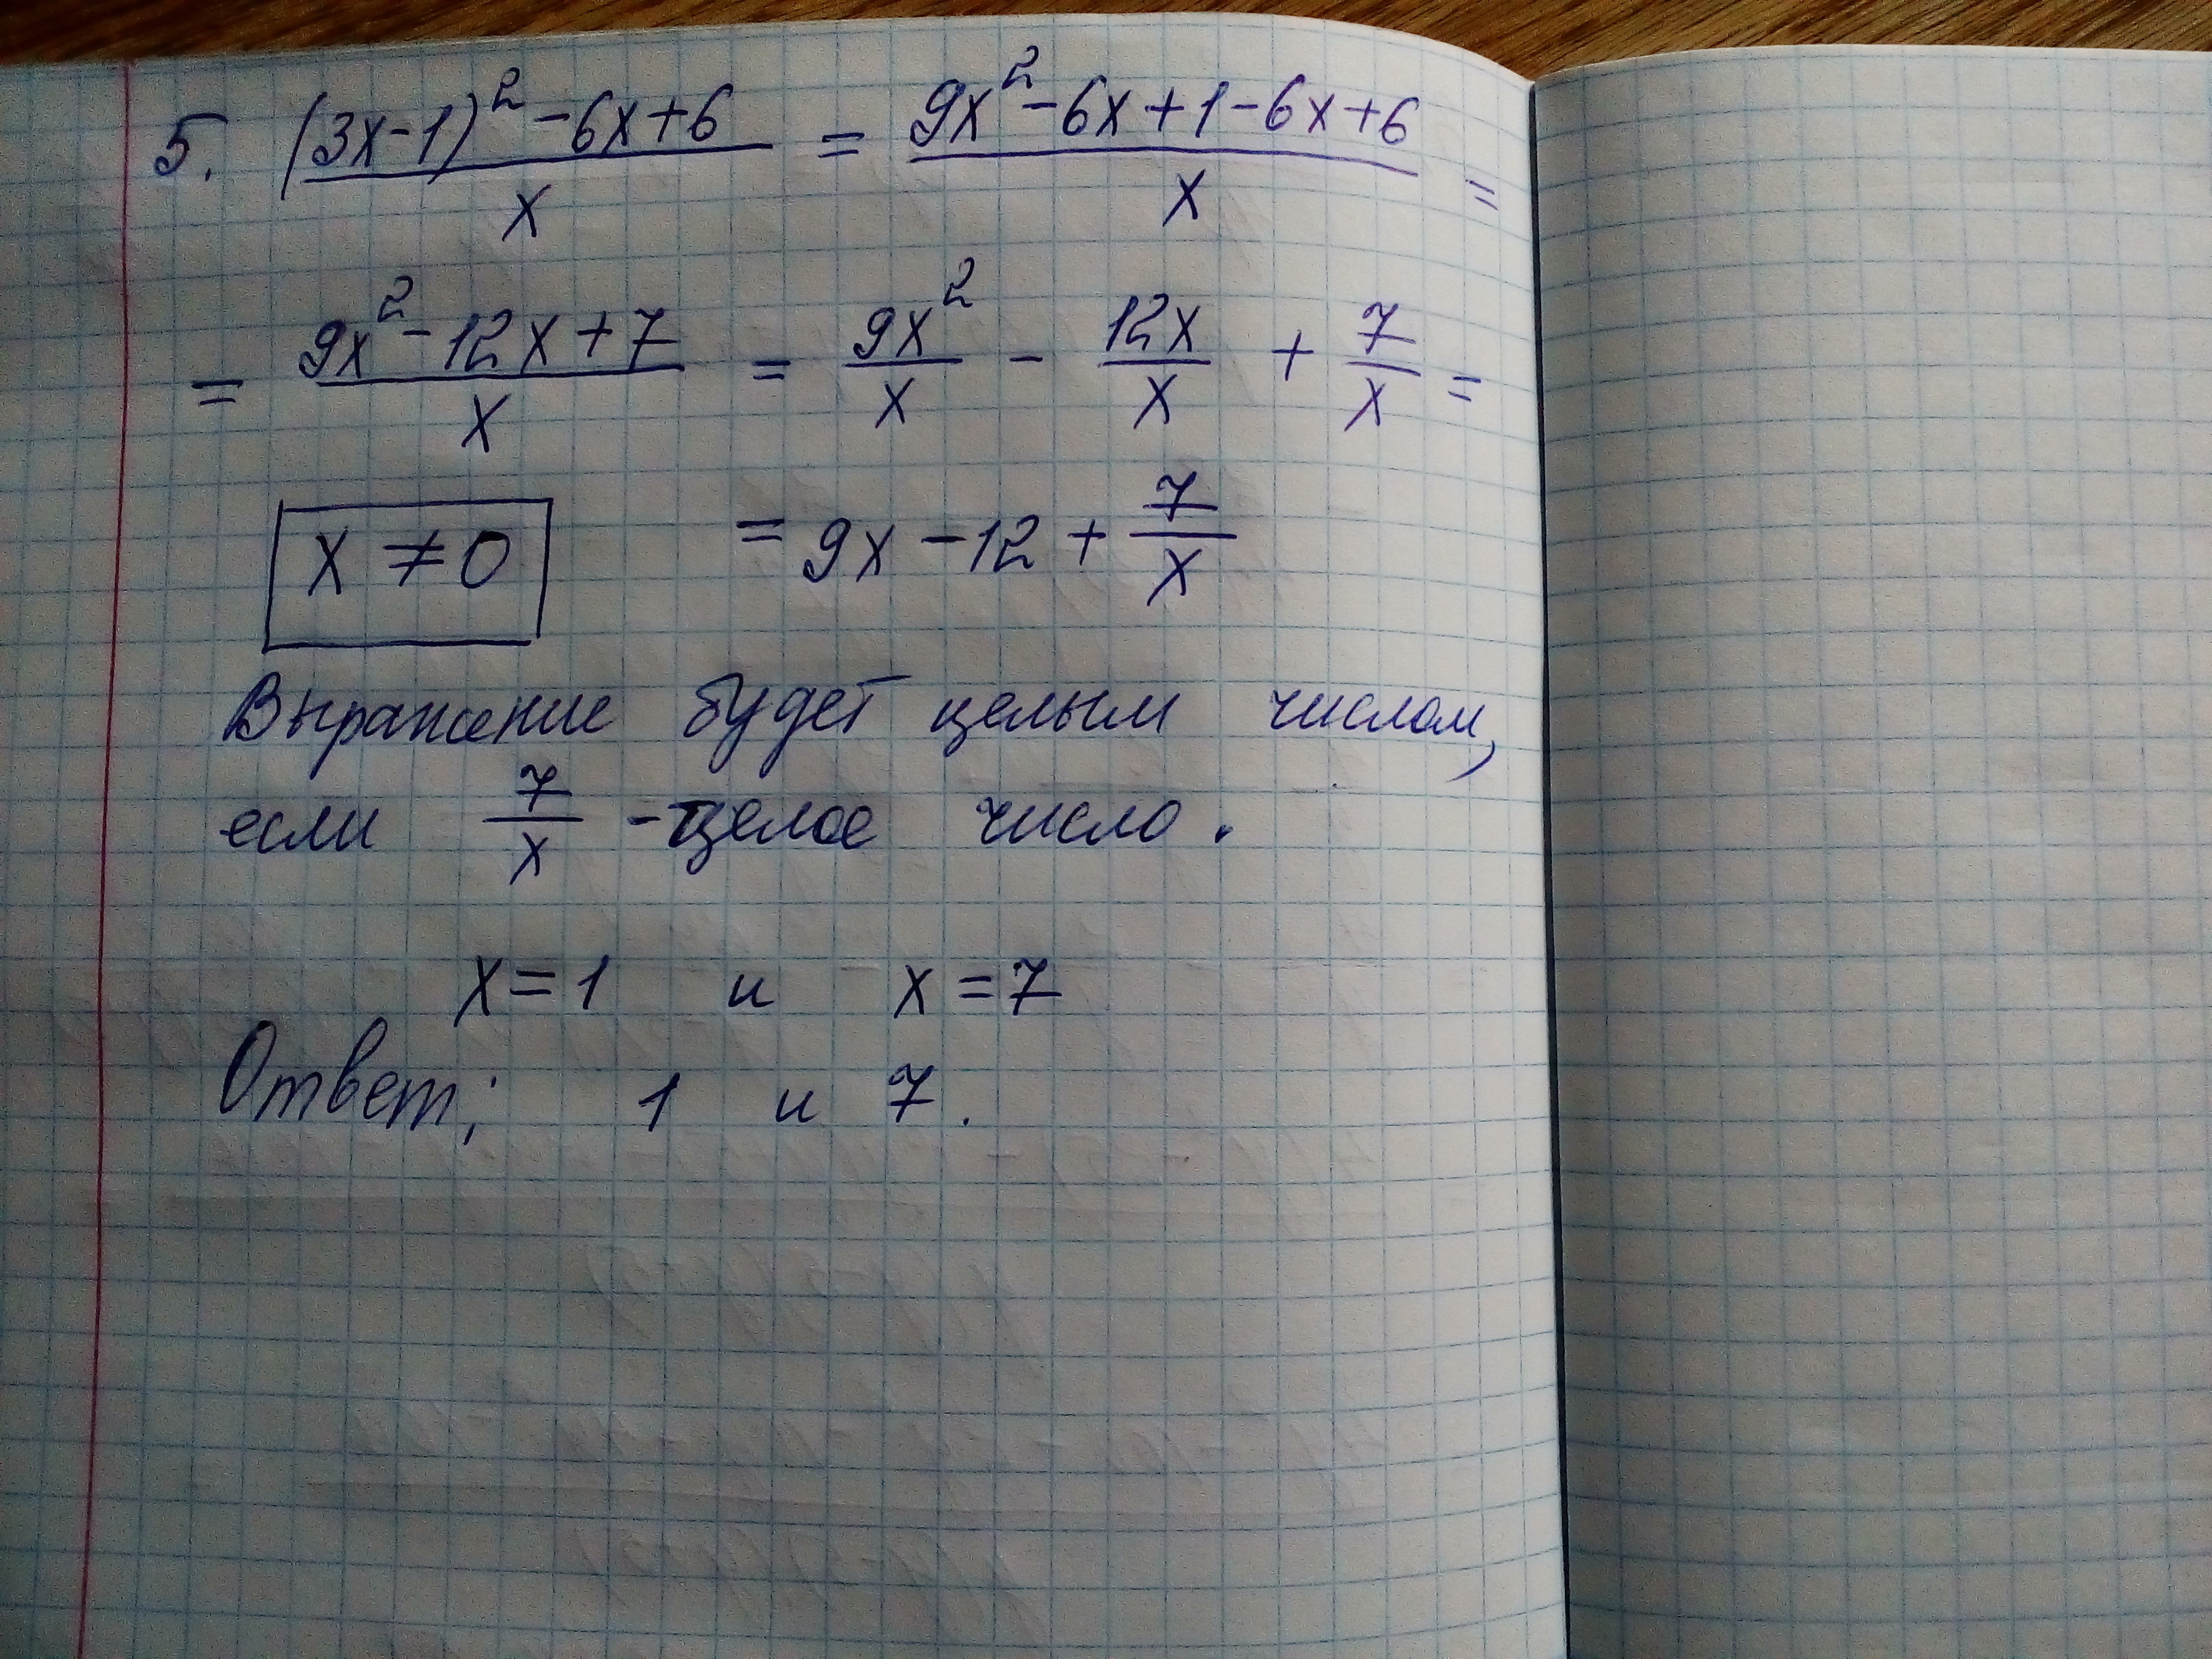 5. ((3x-1)² - 6x + 6)/x = (9x² - 6x + 1 - 6x + 6)/x =
= (9x² - 12x + 7)/x = 9x²/x - 12x/x + 7/x =
x ≠ 0 = 9x - 12 + 7/x
Выражение будет целым числом,
если 7/x - целое число.
x = 1 и x = 7
Ответ; 1 и 7.